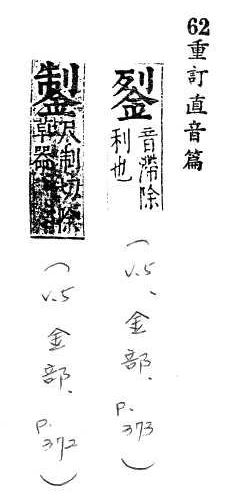 62重訂直音篇
音滯除
利也
（v.5、金部、p.373）
尺制切除
草器
（v.5 金部、p.372）